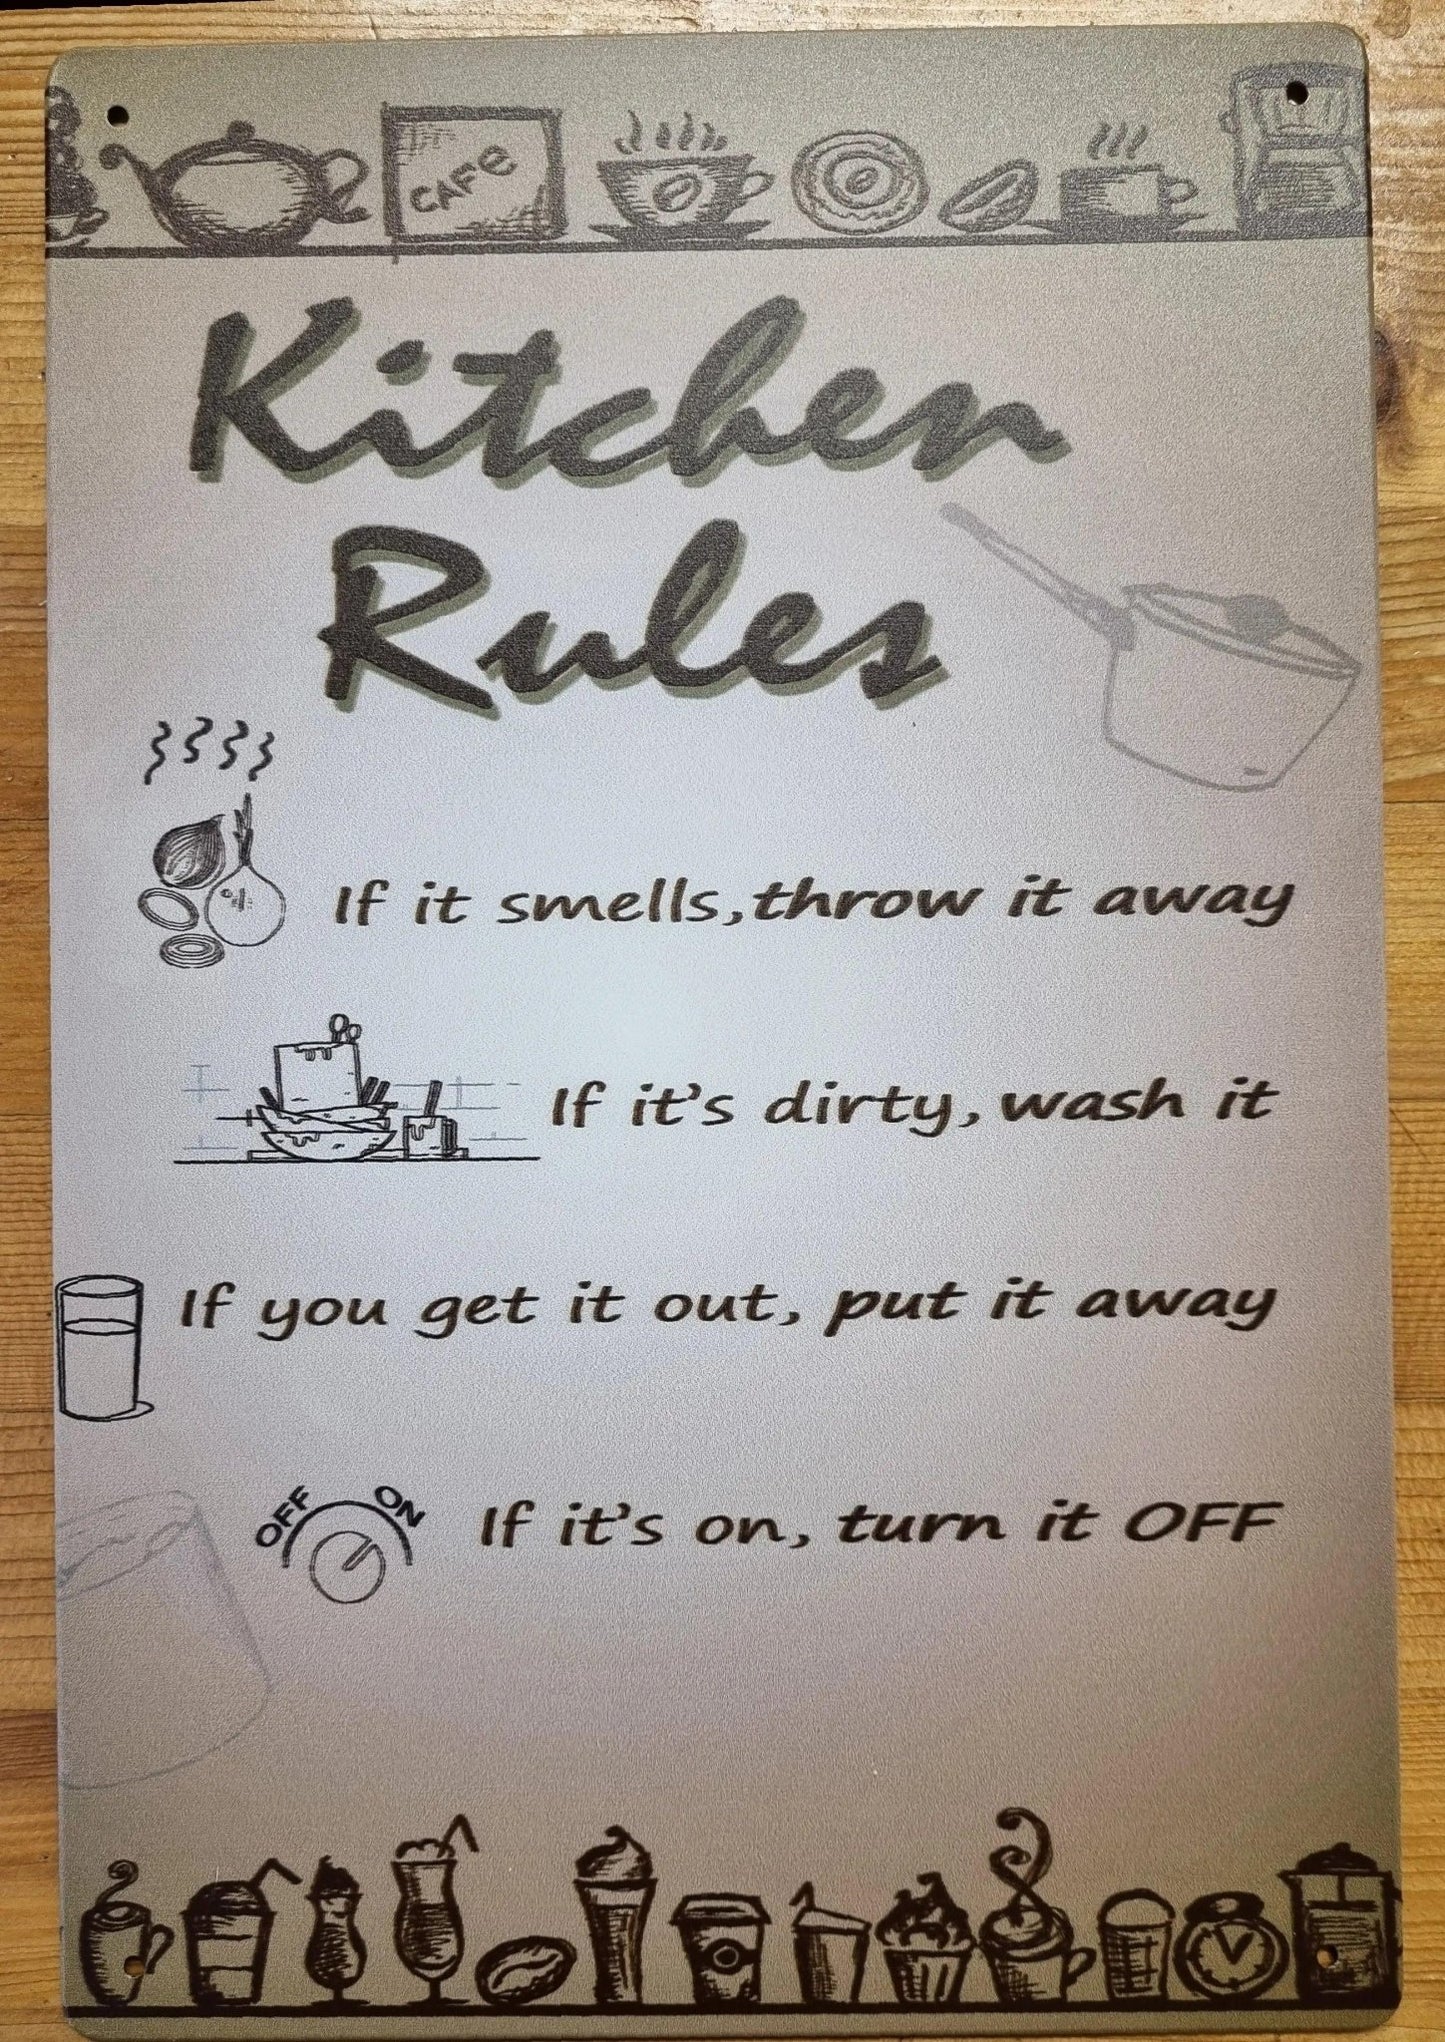 CAFE
Kitchen
Rules
If it smells, throw it away
If it's dirty, wash it
If you get it out, put it away
OFF ON
If it's on, turn it OFF